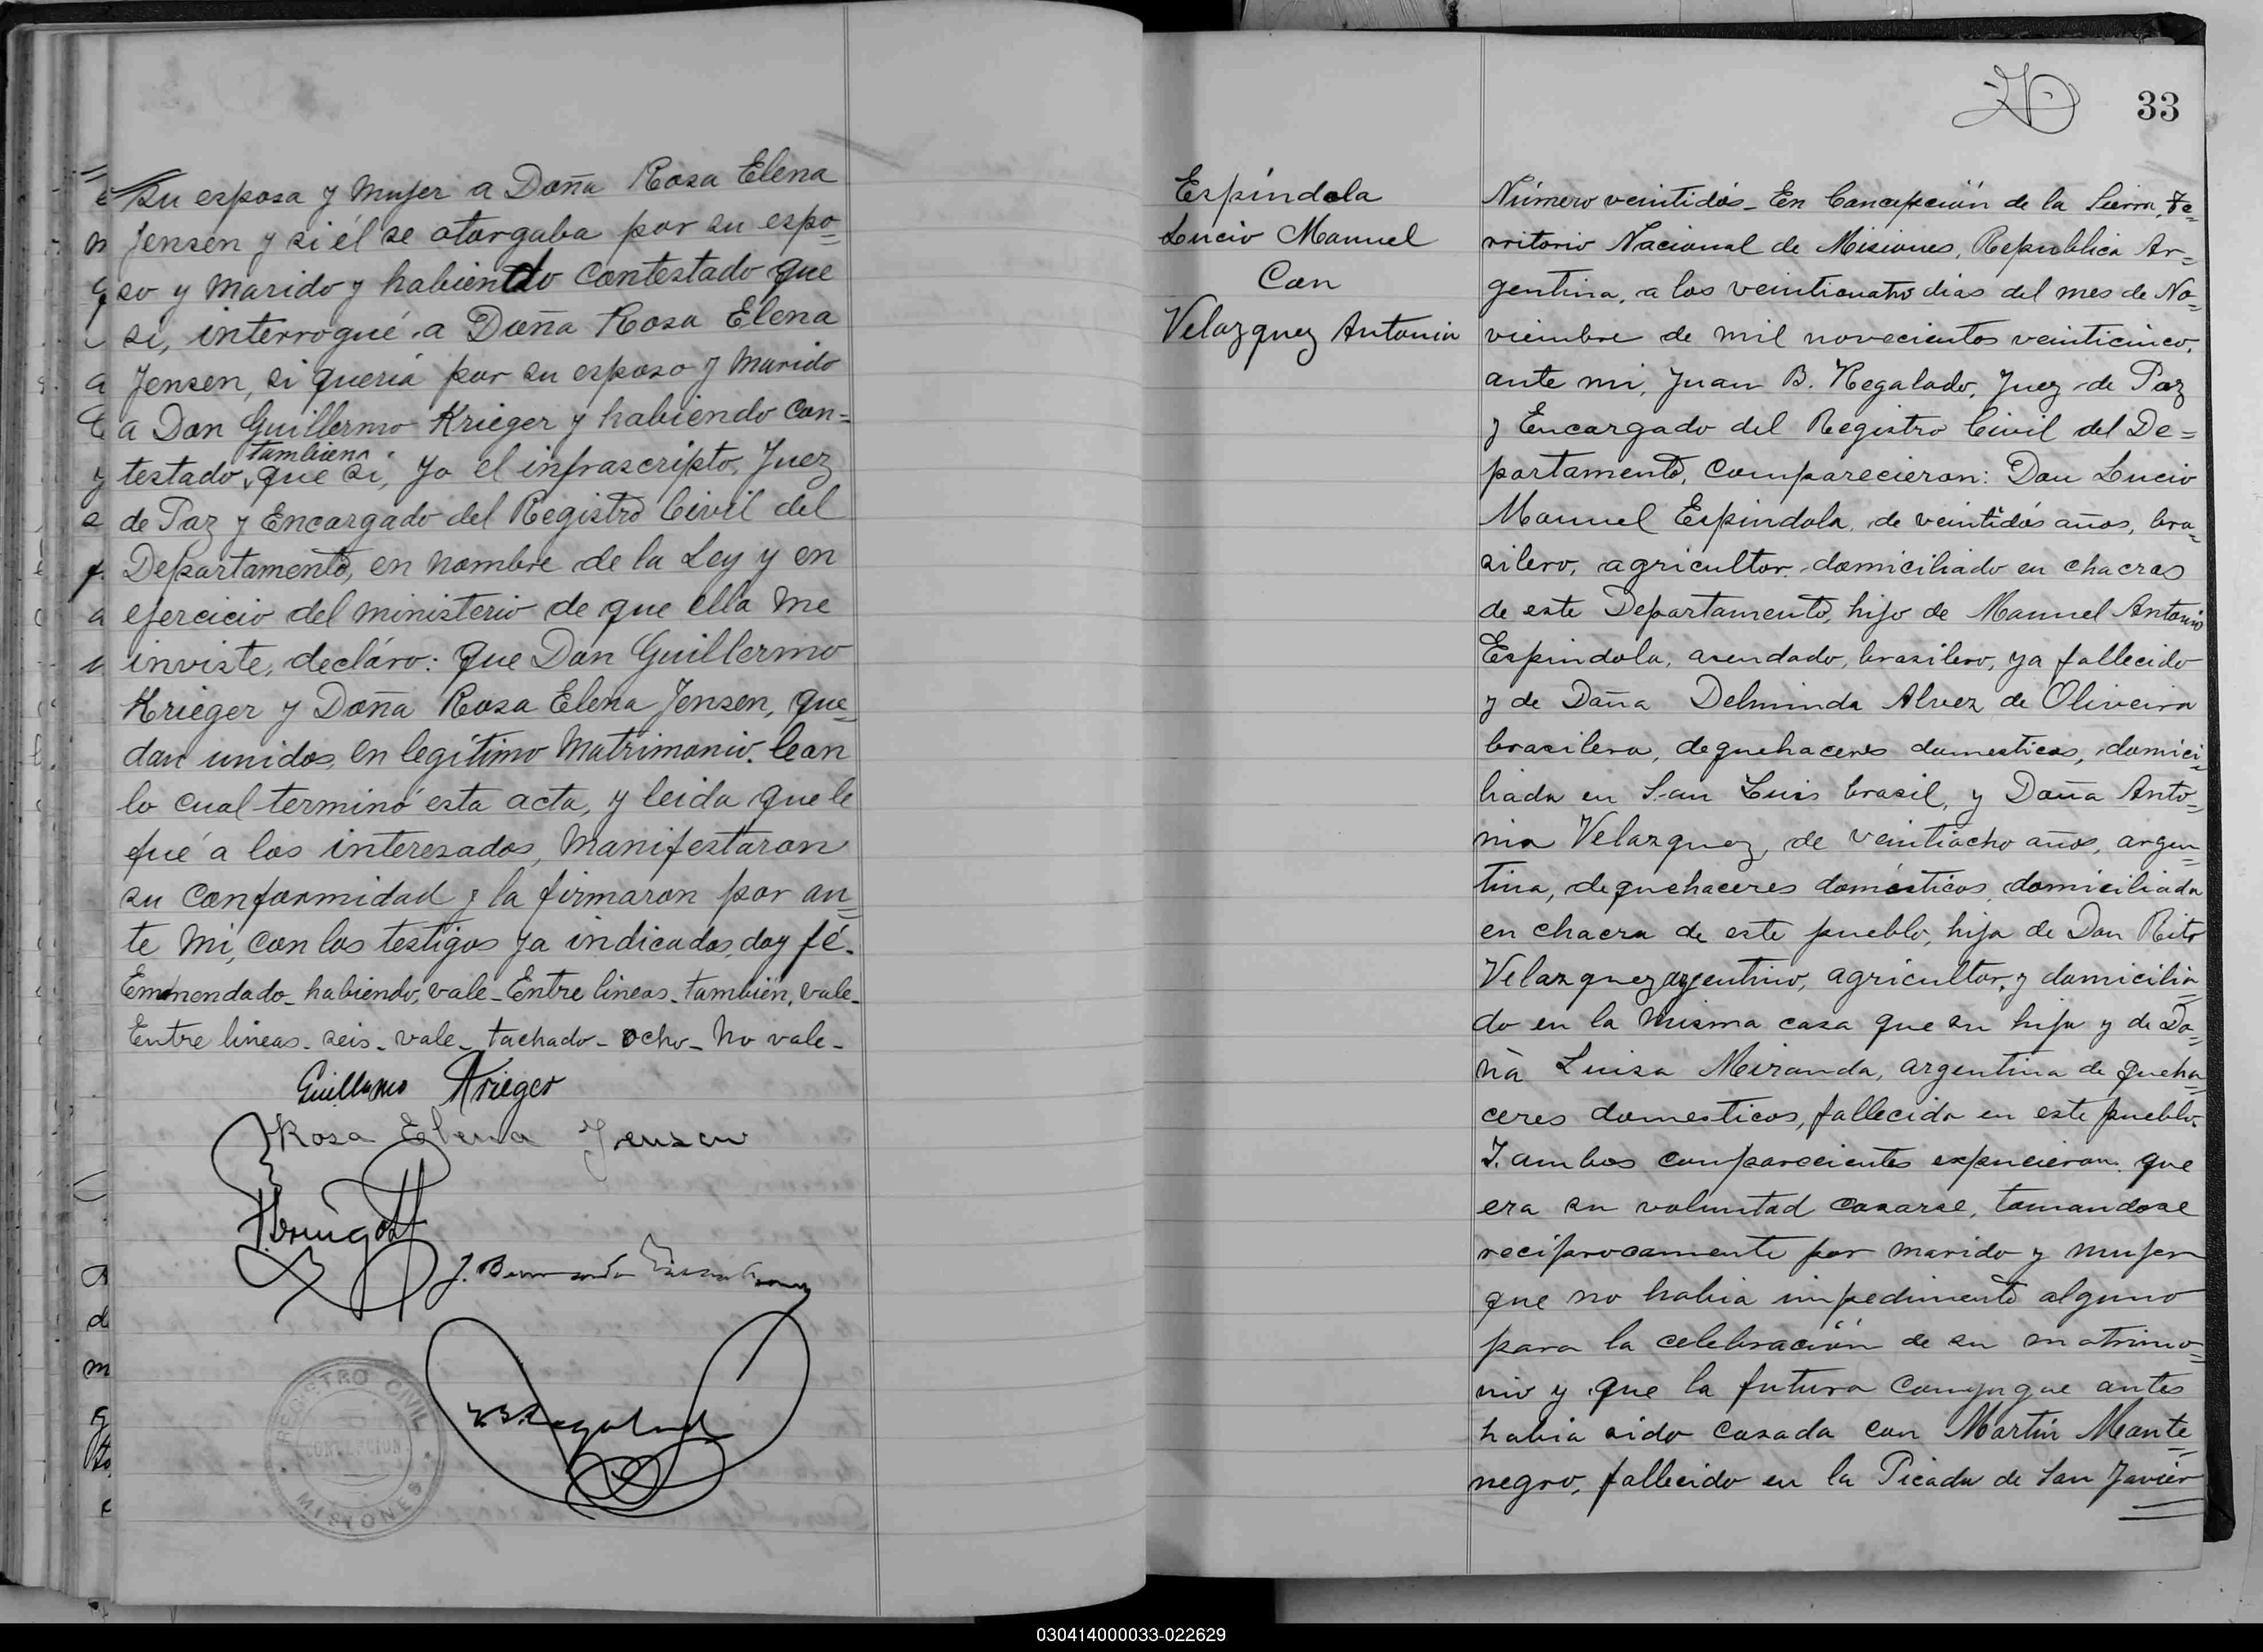 su esposa y mujer a Doña Rosa Elena
Jensen y si él se otorgaba por su espo=
so y marido y habiendo contestado que
si, interrogué a Doña Rosa Elena
Jensen, si queria por su esposo y marido
a Don Guillermo Krieger y habiendo con=
tambien
testado, que si, Yo el infrascripto, Juez
de Paz y Encargado del Registro Civil del
Departamento, en nombre de la Ley y en
ejercicio del ministerio de que ella me
inviste, decláro: que Don Guillermo
Krieger y Doña Rosa Elena Jensen, que=
dan unidos en legítimo Matrimonio. Con
lo cual terminó esta acta, y leida que le
fué a los interesados, manifestaron
su conformidad y la firmaron por an=
te mi, con los testigos ya indicados, doy fé.
Emmendado_ habiendo, vale_ Entre lineas_ tambien, vale_
Entre lineas_ seis_ vale_ tachado_ ocho_ no vale_
Guillermo Krieger
Rosa Elena Jensen
REGISTRO CIVIL
CONCEPCION
MISIONES
33
Espíndola
Lucio Manuel
Con
Velazquez Antonia
Número veintidós_ En Concepción de la Sierra, Te=
rritorio Nacional de Misiones, Republica Ar=
gentina, a los veinticuatro dias del mes de No=
viembre de mil novecientos veinticinco,
ante mi, Juan B. Regalado, Juez de Paz
y Encargado del Registro Civil del De=
partamento, comparecieron: Don Lucio
Manuel Espindola, de veintidós años, bra=
silero, agricultor, domiciliado en chacras
de este Departamento, hijo de Manuel Antonio
Espindola, asendado, brasilero, ya fallecido
y de Doña Delminda Alvez de Oliveira
brasilera, de quehaceres domesticos, domici=
liada en San Luis brasil, y Doña Anto=
nia Velazquez, de veintiocho años, argen=
tina, de quehaceres domésticos, domiciliada
en chacra de este pueblo, hija de Don Rito
Velazquez argentino, agricultor, y domicilia=
do en la misma casa que su hija y de Do=
ña Luisa Miranda, argentina de queha=
ceres domesticos, fallecida en este pueblo.
Y. ambos comparecientes expucieron que
era su voluntad casarse, tomandose
reciprocamente por marido y mujer
que no habia impedimento alguno
para la celebración de su matrimo=
nio y que la futura conyugue antes
habia sido casada con Martín Monte=
negro, fallecido en la Picada de San Javier
030414000033-022629